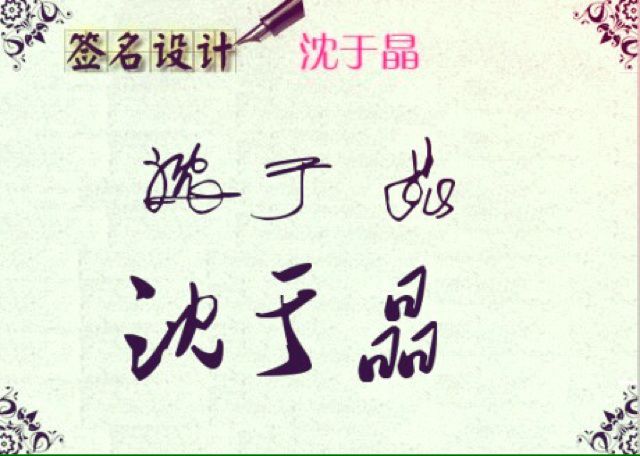 签名设计 沈于晶
沈于晶
沈于晶